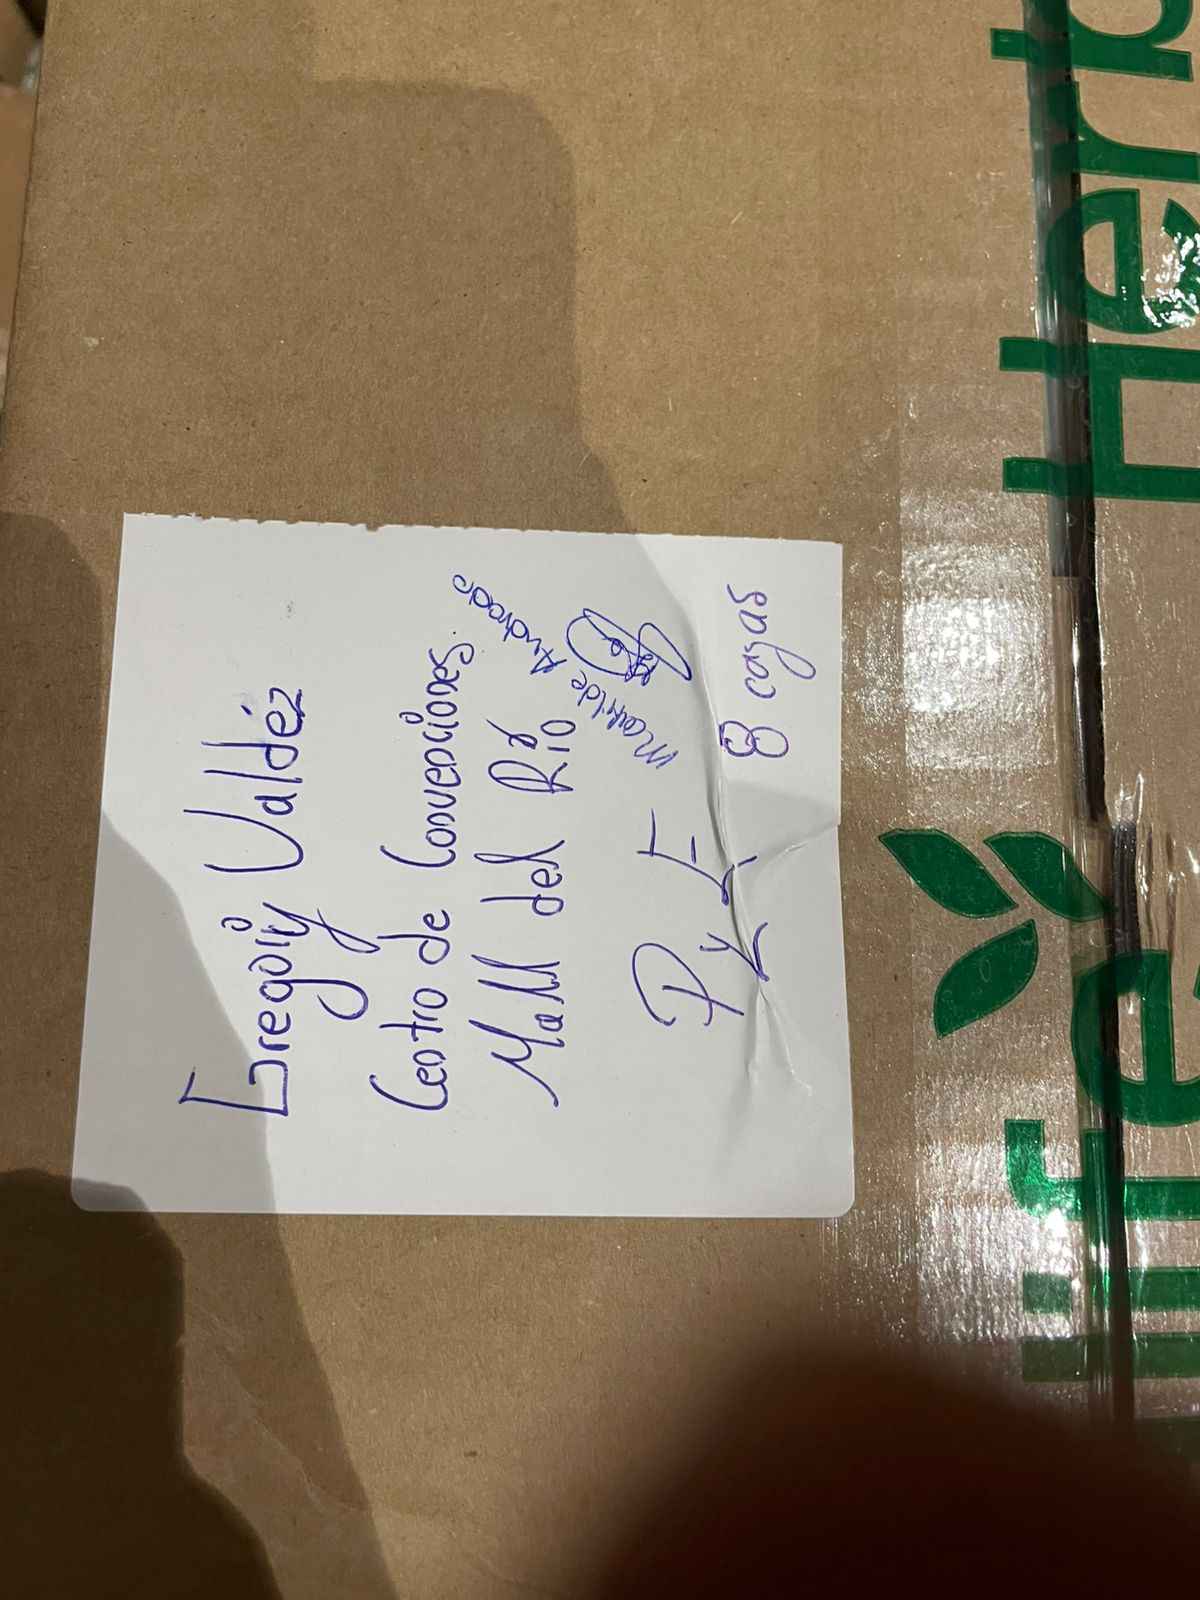 Gregory Valdéz
Centro de Convenciones
Mall del Río
Andrade
P y E
8 cajas
Herb
life